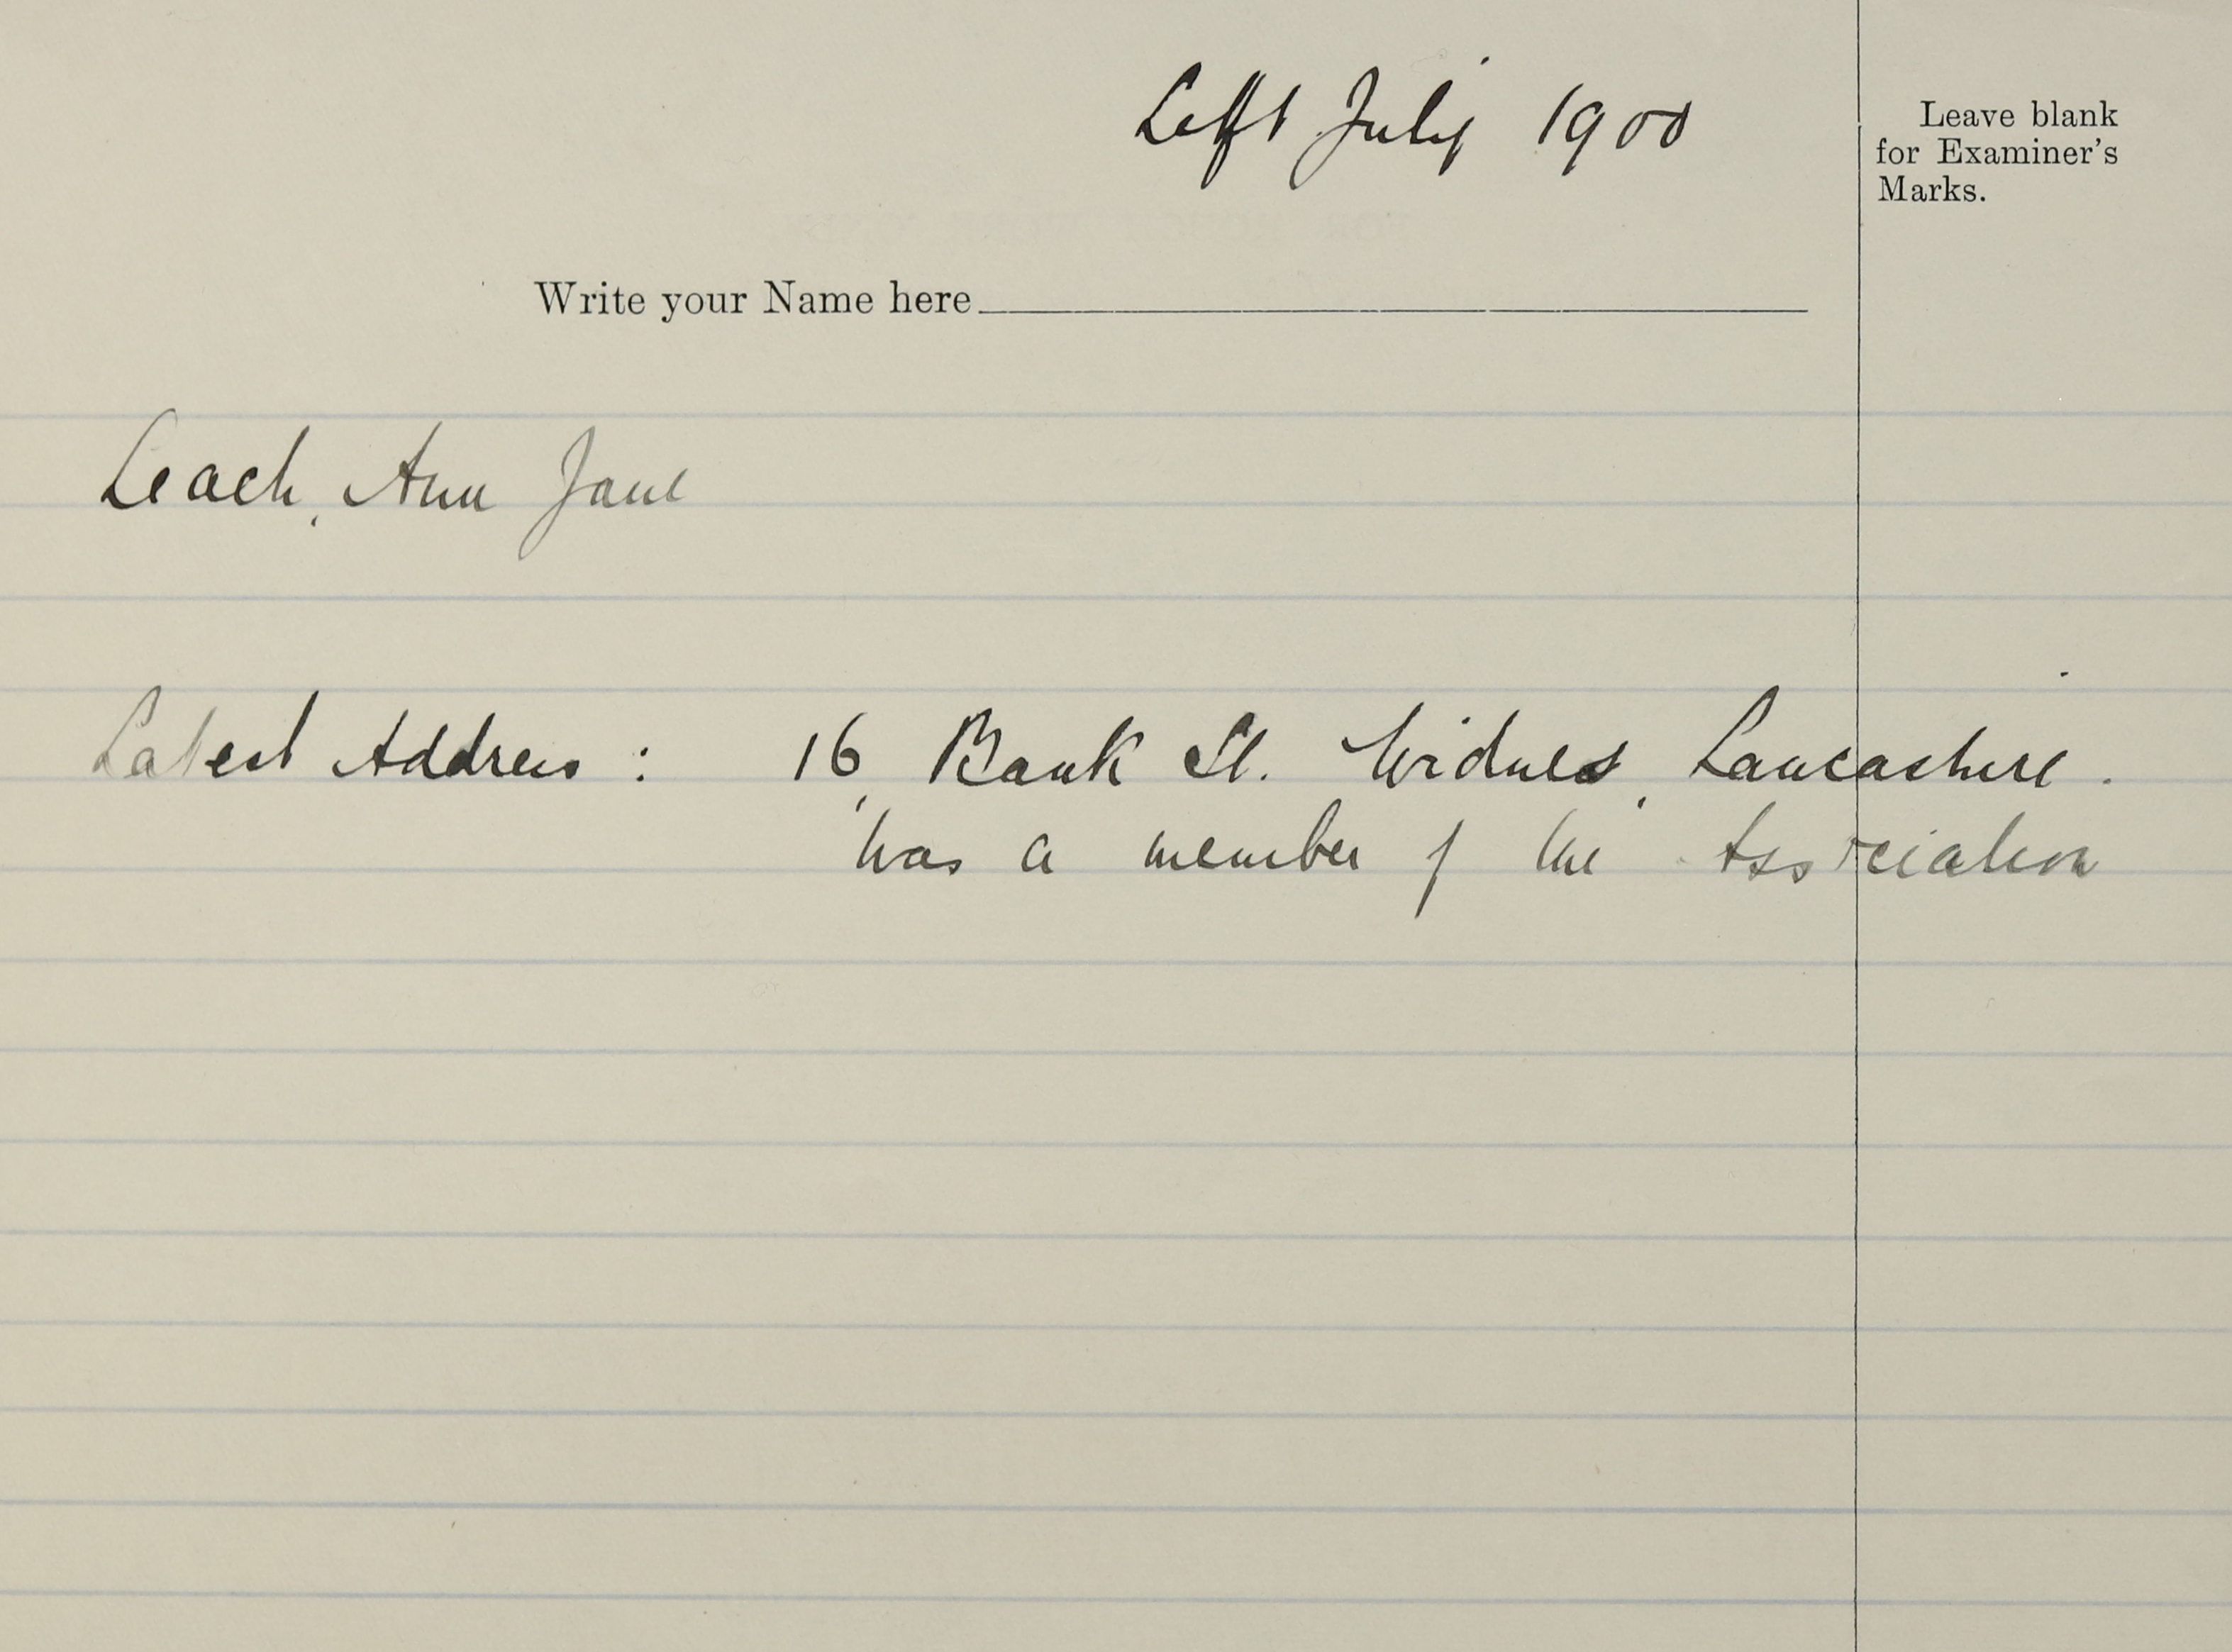 Left July 1900
Leave blank
for Examiner's
Marks.
Write your Name here
Leach, Ann Jane
Latest Address : 16, Bank St. Widnes, Lancashire.
Was a member of the Association